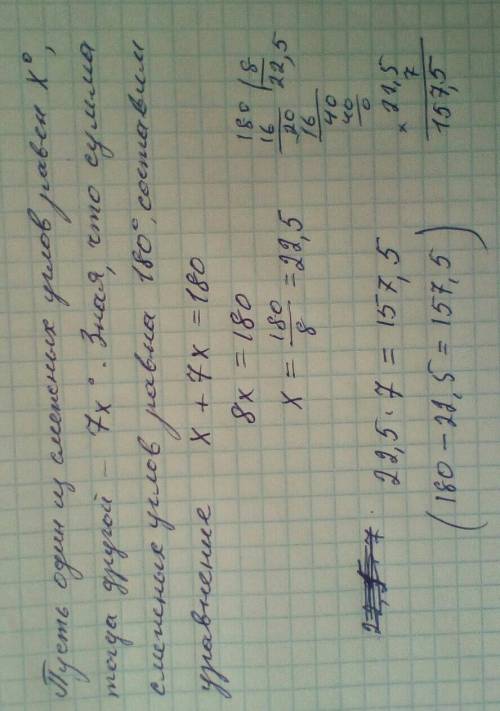 Пусть один из смежных углов равен x°,
тогда другой – 7x°. Зная, что сумма
смежных углов равна 180°, составим
уравнение x + 7x = 180
8x = 180
x = 180/8 = 22,5
180 | 8
16 22,5
20
16
40
40
0
22,5 · 7 = 157,5
× 22,5
7
157,5
(180 – 22,5 = 157,5)